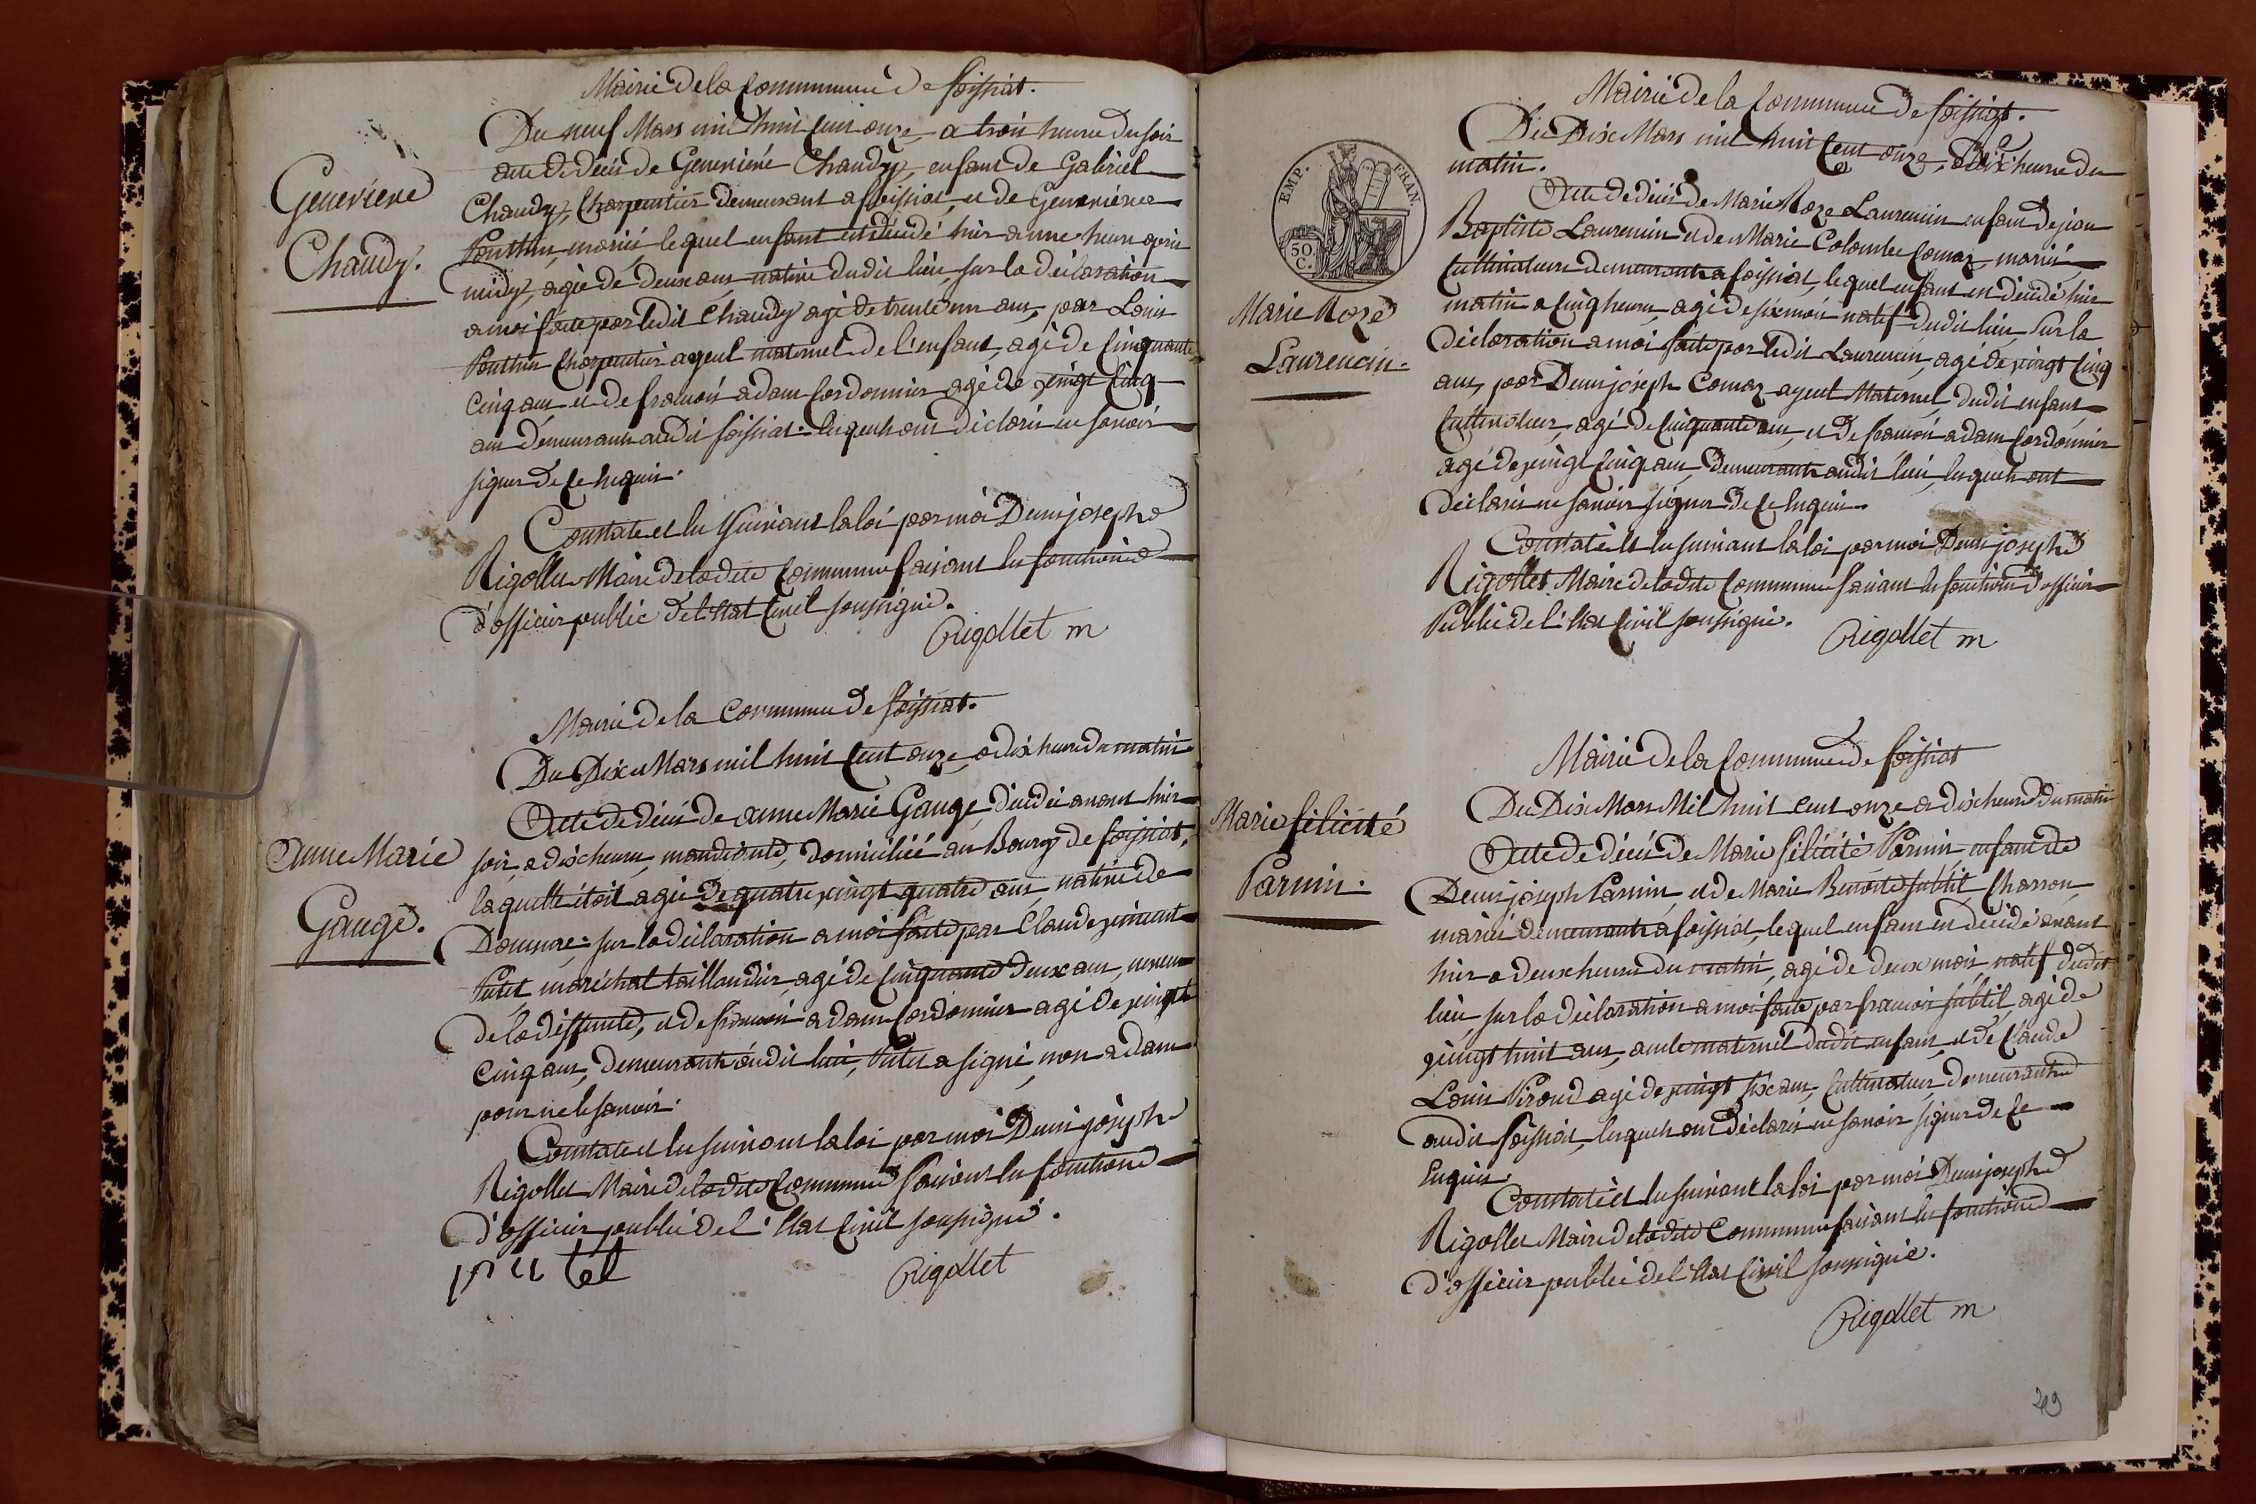 Mairie de la Commune de foissiat.
Du neuf Mars mil huit Cent onze a trois heure du soir
acte de décès de Genevieve Chaudy, enfant de Gabriel
Chaudy, Charpentier demeurant a foissiat, et de Genevieve
Pouthin, mariés lequel enfant est décédé hier a une heure après
midy, agée de deux ans, native dudit lieu, sur la déclaration
a moi faite par ledit Chaudy agé de trente un ans, par Louis
Pouthin Charpentier ayeul maternel de l'enfant, agé de Cinquante
Cinq ans et de francois adam Cordonnier agé de vingt Cinq
ans demeurants audit foissiat. lesquels ont déclarés ne savoir
signer de Ce requis.
Constaté et lu suivant la loi par moi Denis joseph
Rigollet Maire de ladite Commune faisant les fonctions
d'officier public de l'état Civil soussigné.
Rigollet m
Genevieve
Chaudy.
Mairie de la Commune de foissiat.
Du Dix Mars mil huit Cent onze, a dix heure du matin
Acte de décès de anne Marie Gauge, décédée avant hier
soir, a dix heures, mandiante, domiciliée au Bourg de foissiat,
laquelle étoit agée de quatre vingt quatre ans, native de
sur la déclaration a moi faite par Claude vincent
Putet maréchal taillandier, agé de Cinquante deux ans, neveu
de la deffunte, et de francois adam Cordonnier agé de vingt
Cinq ans, demeurants audit lieu, Putet a signé, non adam
pour ne le savoir.
Constaté et lu suivant la loi par moi Denis joseph
Rigollet Maire de ladite Commune faisant les fonctions
d'officier public de l'état Civil soussigné.
putet
Rigollet
anne Marie
Gauge.
Mairie de la Commune de foissiat.
Du Dix Mars mil huit Cent onze, a Dix heure du
matin.
Acte de décès de Marie Roze Laurencin enfant de jean
Baptiste Laurencin et de Marie Colombe Comaz, mariés
Cultivateurs demeurants a foissiat, lequel enfant est décédé hier
matin a Cinq heures, agé de six mois natif dudit lieu, sur la
déclaration a moi faite par ledit Laurencin, agé de vingt Cinq
ans, par Denis joseph Comaz ayeul Maternel dudit enfant
Cultivateur, agé de Cinquante ans, et de francois adam Cordonnier
agé de vingt Cinq ans, demeurants audit lieu, lesquels ont
déclarés ne savoir signer de Ce requis.
Constaté et lu suivant la loi par moi Denis joseph
Rigollet Maire de ladite Commune faisant les fonctions d'officier
Public de l'état Civil soussigné.
Rigollet m
EMP. FRAN.
50
C.
Marie Roze
Laurencin.
Mairie de la Commune de foissiat
Du Dix Mars Mil huit Cent onze a dix heures du matin
Acte de décès de Marie félicité Parnin, enfant de
Denis joseph Parnin, et de Marie Benoite subtil, Charron,
mariés demeurants a foissiat, lequel enfant est décédé avant
hier a deux heures du matin, agé de deux mois, natif dudit
lieu, sur la déclaration a moi faite par francois subtil, agé de
vingt huit ans, oncle maternel dudit enfant, et de Claude
Louis Piroud agé de vingt six ans, Cultivateur, demeurants
audit foissiat, lesquels ont déclarés ne savoir signer de Ce
requis.
Constaté et lu suivant la loi par moi Denis joseph
Rigollet Maire de ladite Commune faisant les fonctions
d'officier public de l'état Civil soussigné.
Rigollet m
Marie félicité
Parnin.